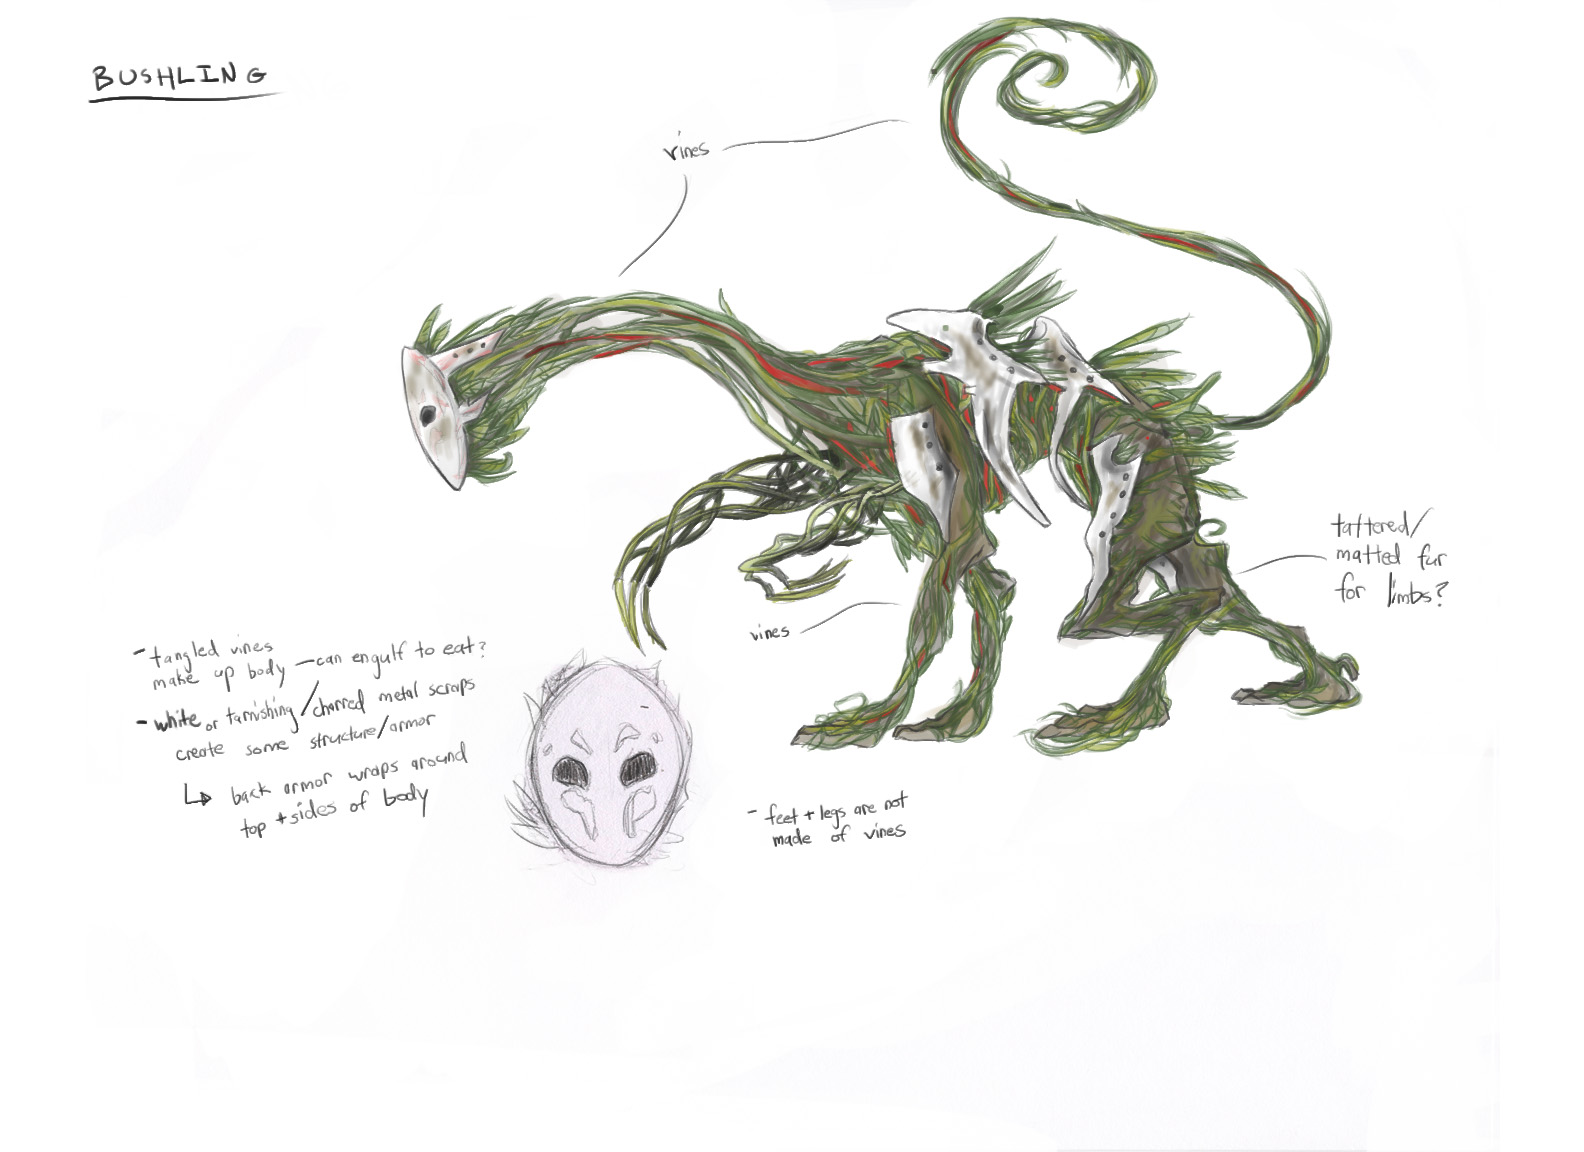 BUSHLING
vines
tattered/
matted fur
for limbs?
vines
- tangled vines
make up body - can engulf to eat?
- white or tarnishing/charred metal scraps
create some structure/armor
↳ back armor wraps around
top + sides of body
- feet + legs are not
made of vines